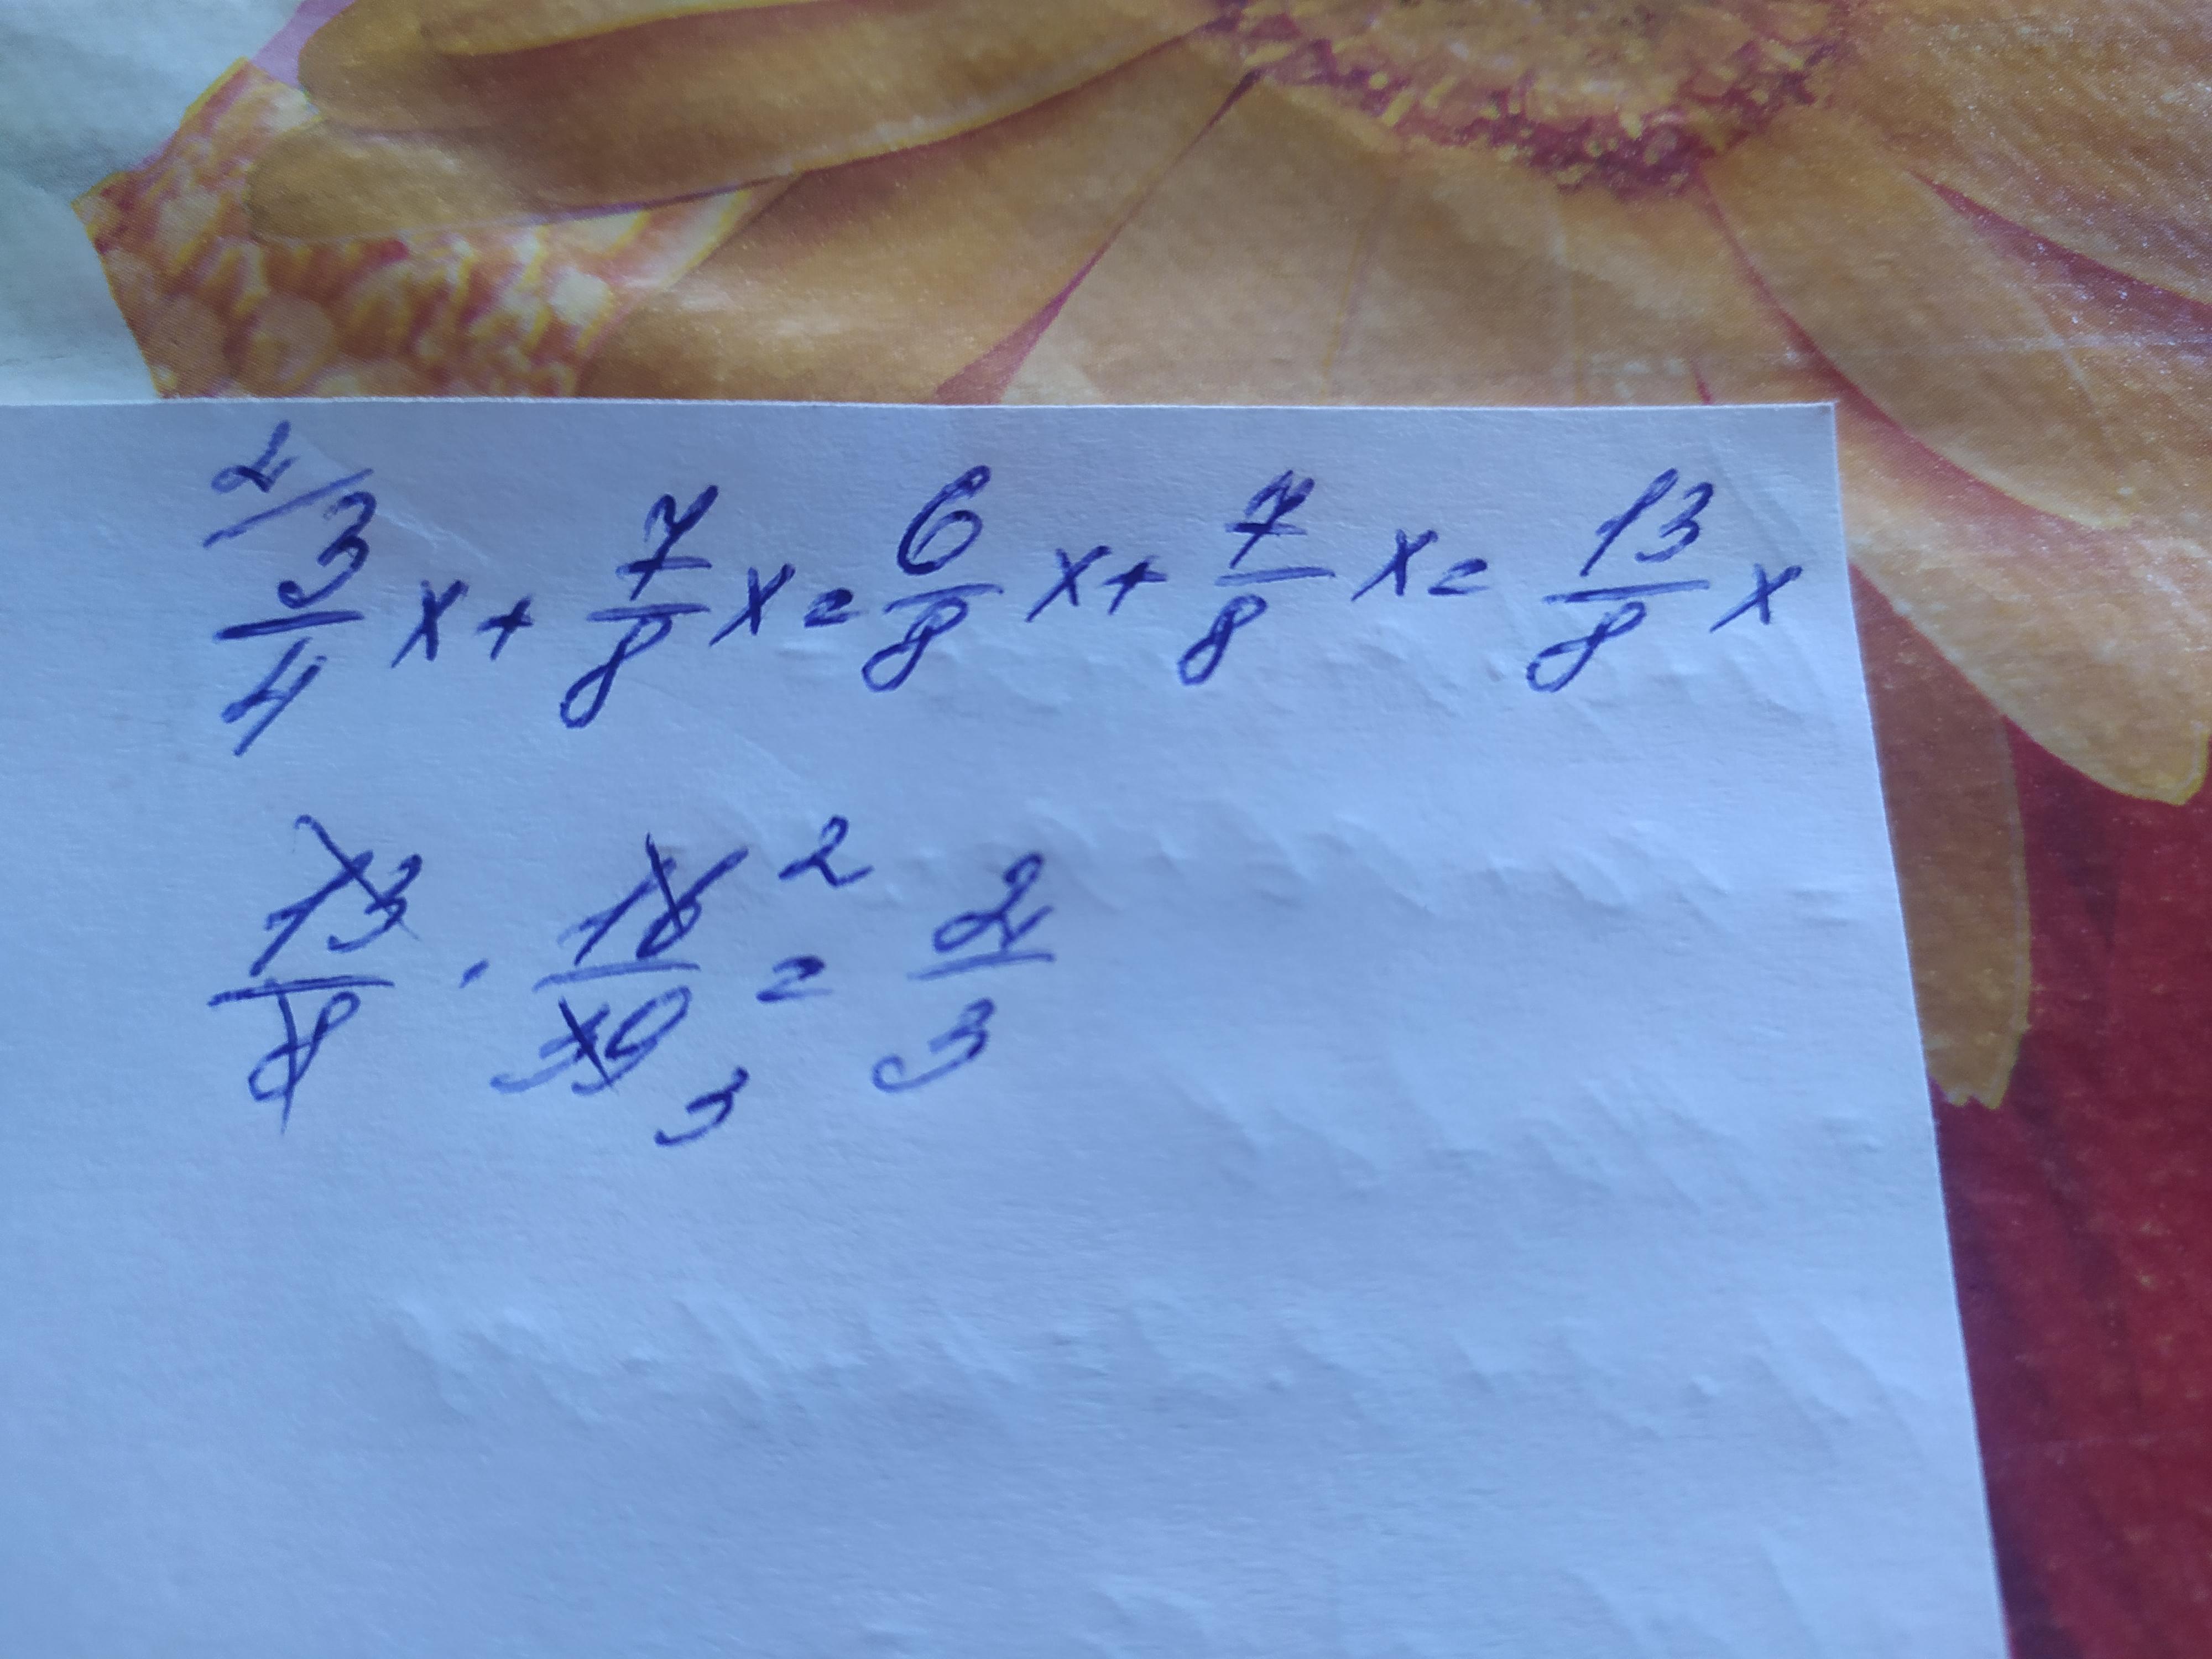 2/ 3/4 x + 7/8 x = 6/8 x + 7/8 x = 13/8 x
13/8 · 16/39 2 3 = 2/3